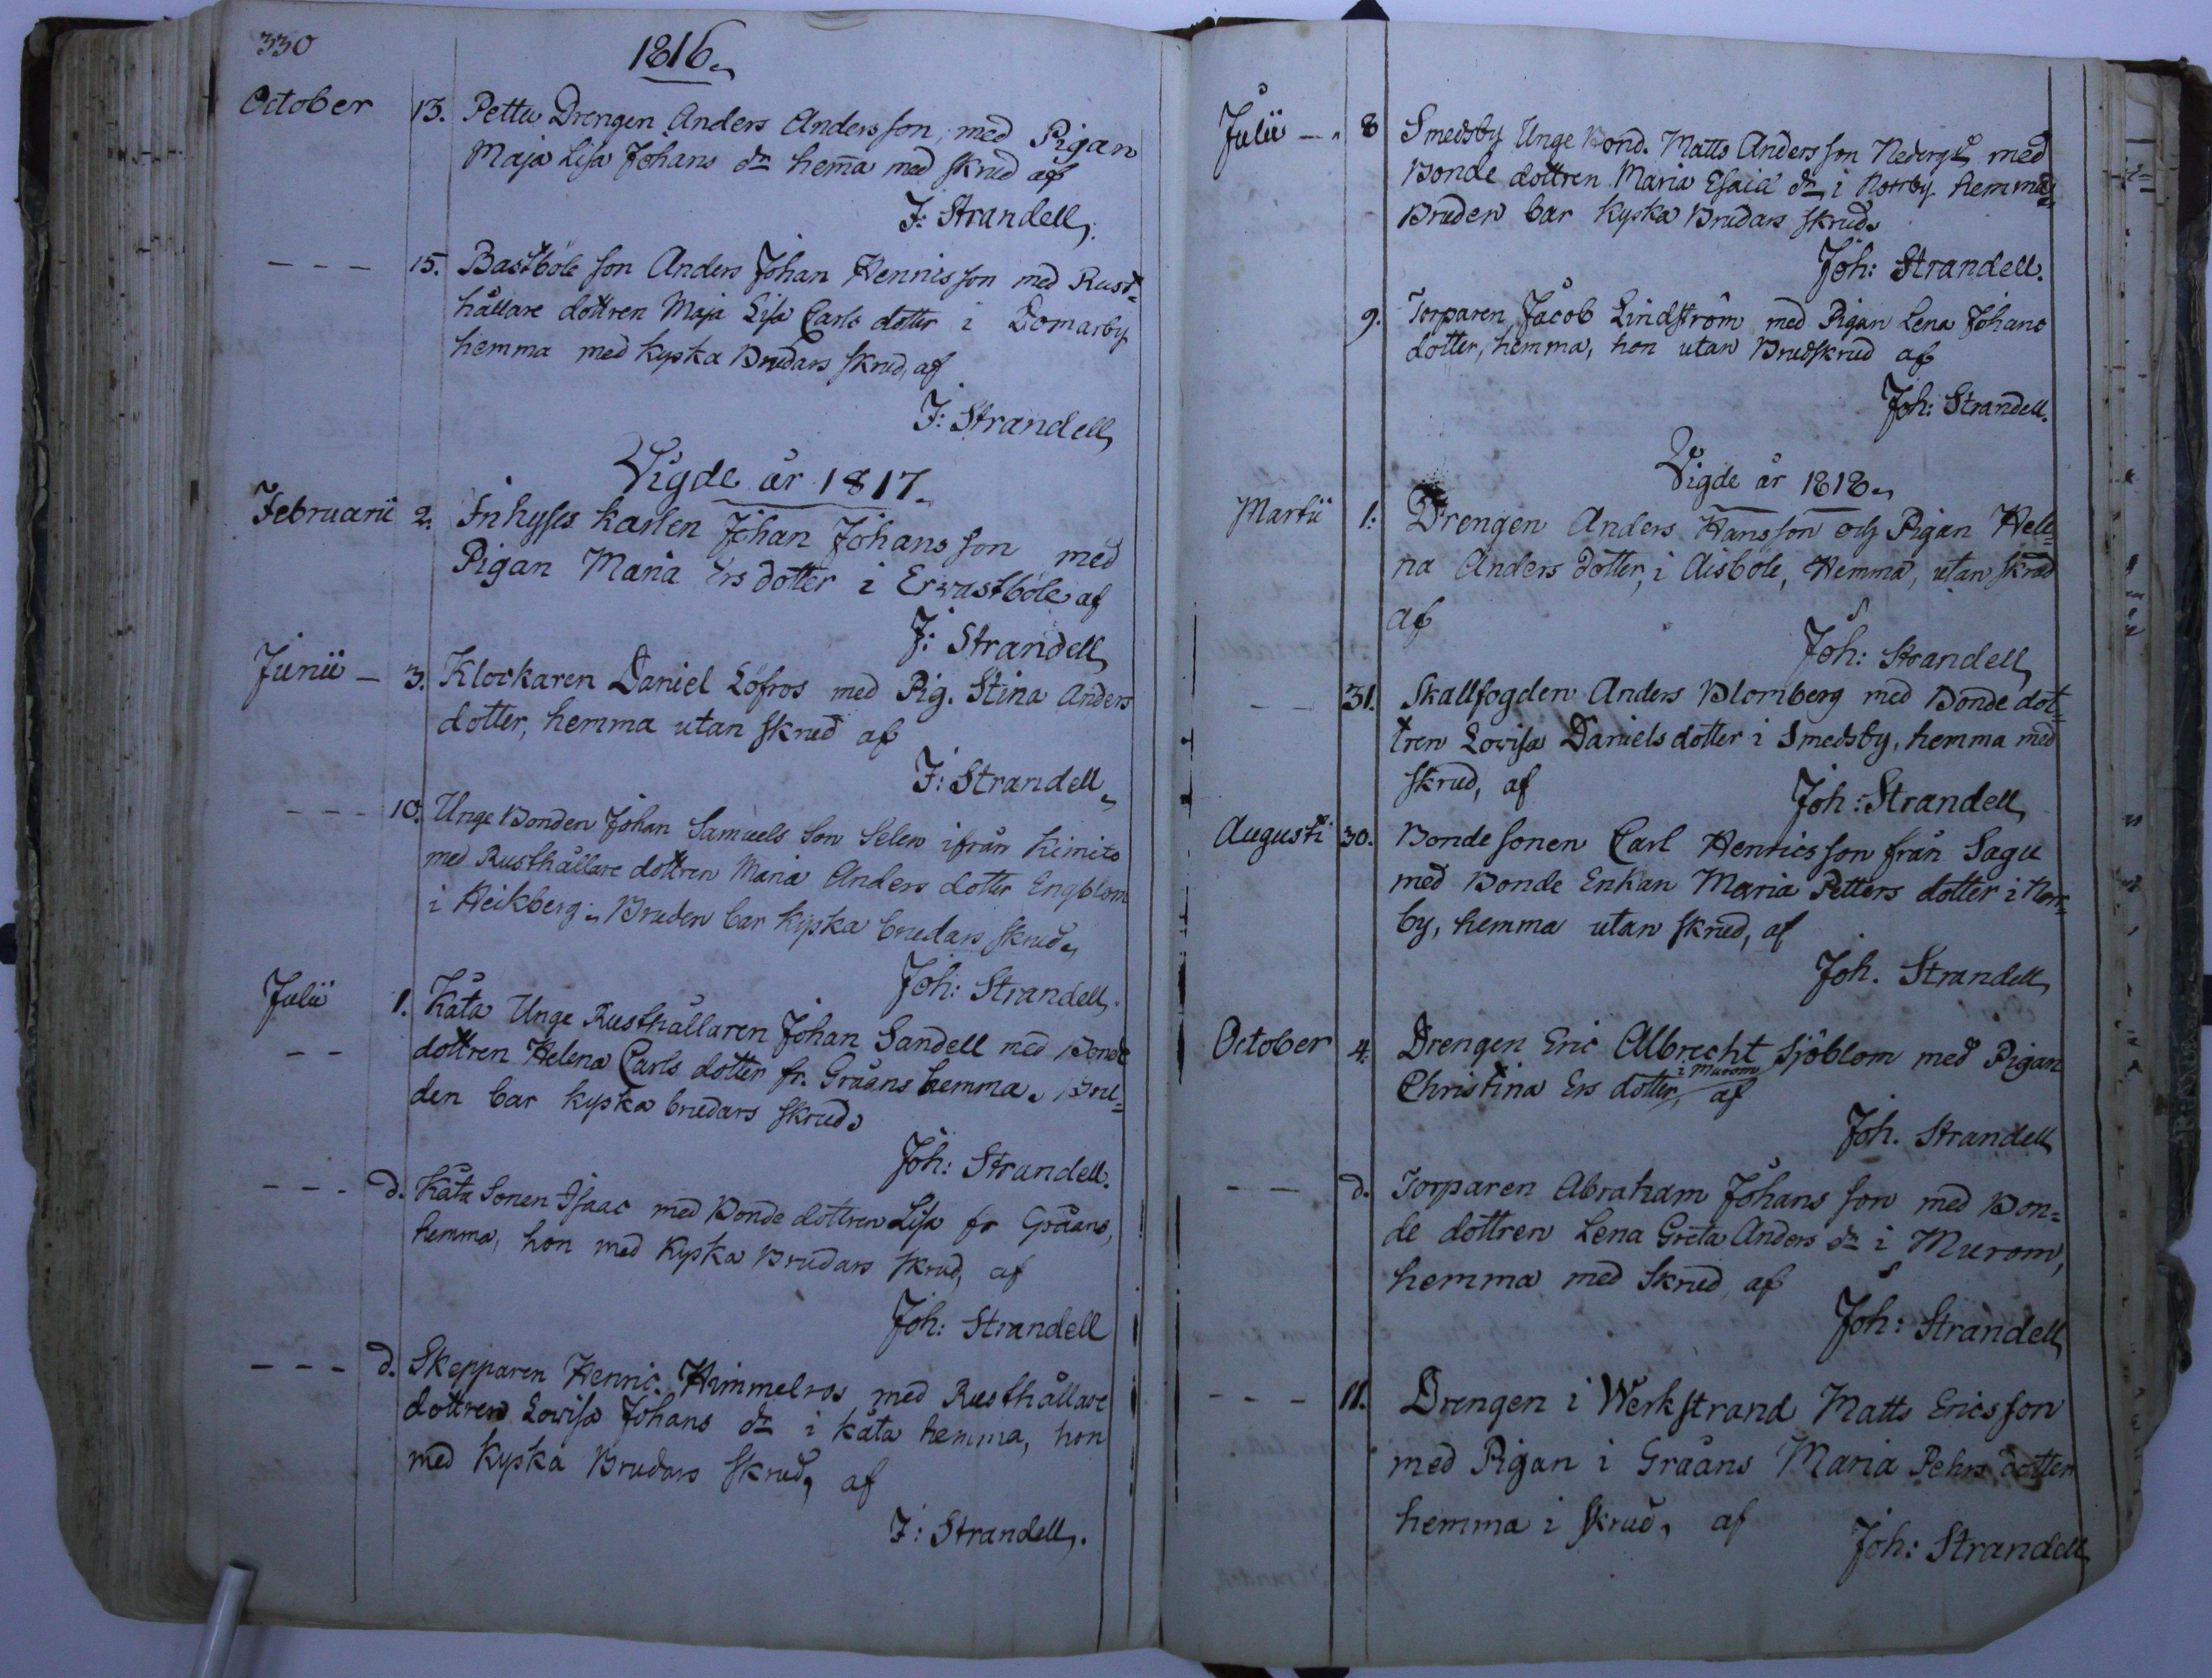 330
1816.
October 13. Petteu Drengen Anders Andersson, med Pigan
Maja Lisa Johans dr hem̅a med skrud af
J: Strandell.
- - - 15. Bastböle son Anders Johan Hennisson med Rust-
hållare dottren Maja Lisa Carls dotter i Domarby
hemma med kyska Brudars skrud, af
J: Strandell
Vigde år 1817.
Februarii 2. Inhyses karlen Johan Johansson med
Pigan Maria Ersdotter i Erwastböle af
J: Strandell
Junii - 3. Klockaren Daniel Löfros med Pig. Stina Anders
dotter, hemma utan skrud af
J: Strandell
- - - 10. Unge Bonden Johan Samuels Son Selen ifrån Kimito
med Rusthållare dottren Maria Anders dotter Engblom
i Heikberg. Bruden bar kyska brudars skrud.
Joh: Strandell.
Julii 1. Kåta Unge Rusthållaren Johan Sandell med Bonde
- - dottren Helena Carls dotter fr. Gråäns hemma. Bru-
den bar kyska brudars skrud.
Joh: Strandell.
- - - d. Kåta Sonen Isaac med Bonde dottren Lisa fr Gråäns,
hemma, hon med kyska Brudars skrud, af
Joh: Strandell
- - - d. Skepparen Henric Himmelros med Rusthållare
dottren Lowisa Johans dr i kåta hemma, hon
med kyska Brudars skrud, af
J: Strandell.
Julii - 8 Smedsby Unge Bond. Matts Andersson Nederg: med
Bonde dottren Maria Esaiæ dr i Norrby hemma,
Bruden bar kyska Brudars skrud.
Joh: Strandell.
9. Torparen Jacob Lindström med Pigan Lena Johans
dotter, hemma, hon utan Brudskrud af
Joh: Strandell.
Vigde år 1818.
Martii 1. Drengen Anders Hansson och Pigan Hele-
na Anders dotter, i Aisböle, Hemma, utan skrud
af
Joh: Strandell
- - 31. Skallfogden Anders Blomberg med Bonde dot-
tren Lowisa Daniels dotter i Smedsby, hemma med
skrud, af
Joh: Strandell
Augusti 30. Bonde sonen Carl Henricsson från Sagu
med Bonde Enkan Maria Petters dotter i Norr-
by, hemma utan skrud, af
Joh. Strandell
October 4. Drengen Eric Albrecht Sjöblom med Pigan
Christina Ers dotter, i Murom af
Joh. Strandell
- - d. Torparen Abraham Johans son med Bon-
de dottren Lena Greta Anders dr i Murom,
hemma med Skrud af
Joh: Strandell
- - - 11. Drengen i Werkstrand Matts Ericsson
med Pigan i Gråäns Maria Pehrs dotter
hemma i skrud, af
Joh: Strandell